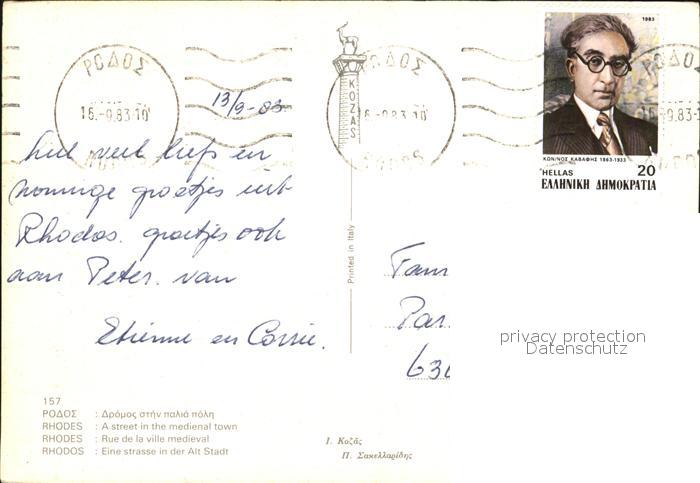 ΡΟΔΟΣ
16.-9.83.10
RODOS
13/9-83
KOZAS
ΡΟΔΟΣ
6-9.83.10
RODOS
1983
ΚΩΝ/ΝΟΣ ΚΑΒΑΦΗΣ 1863-1933
HELLAS 20
ΕΛΛΗΝΙΚΗ ΔΗΜΟΚΡΑΤΙΑ
-9.83.1
heel veel liefs en
zonnige groetjes uit
Rhodos. groetjes ook
aan Peter. van
Etienne en Corrie.
Printed in Italy
Fam
Par
630
privacy protection
Datenschutz
157
ΡΟΔΟΣ : Δρόμος στήν παλιά πόλη
RHODES : A street in the medienal town
RHODES : Rue de la ville medieval
RHODOS : Eine strasse in der Alt Stadt
Ι. Κοζᾶς
Π. Σακελλαρίδης